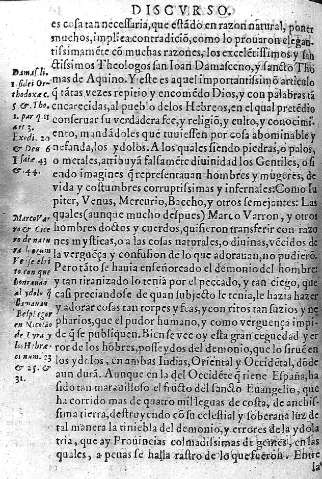 DISCVRSO.
es cosa tan necessaria, que estādo en razon natural, poner
muchos, implica contradiciō, como lo prouaron elegan-
tissimamēte cō muchas razones, los excelētissimos y san
ctissimos Theologos san Ioan Damasceno, y sancto Tho
mas de Aquino. Y este es aquel importantissimo articulo
q̄ tātas vezes repitio y encomēdo Dios, y con palabras tā
encarecidas, al pueblo de los Hebreos, en el qual pretēdio
conseruar su verdadera fee, y religiō, y culto, y conoci-
miento, mandādoles que tuuiessen por cosa abominable y
nefanda, los ydolos. A los quales siendo piedras, o palos,
o metales, atribuyā falsamēte diuinidad los Gentiles, o si
endo imagines q̄ representauan hombres y mugeres, de
vida y costumbres corruptissimas y infernales: Como Iu
piter, Venus, Mercurio, Baccho, y otros semejantes: Las
quales (aunque mucho despues) Marco Varron, y otros
hombres doctos y cuerdos, quisieron transferir con razo
nes mysticas, o a las cosas naturales, o diuinas, vēcidos de
la verguēça y confusion de lo que adorauan, no pudierō.
Pero tāto se hauia enseñoreado el demonio del hombre:
y tan tiranizado lo tenia por el peccado, y tan ciego, que
casi preciandose de quan subjecto le tenia, le hazia hazer
y adorar cosas tan torpes y feas, y con ritos tan suzios y ne
pharios, que el pudor humano, y como verguença impi-
de q̄ se publiquen. Bien se vee oy esta gran ceguedad y er
ror de los hōbres, posseydos del demonio, que lo siruē en
los ydolos, en ambas Indias, Oriental, y Occidētal, dōde
aun dura. Aunque en la del Occidēte q̄ tiene España, ha
sido tan marauilloso el fructo del sancto Euangelio, que
ha corrido mas de quatro mil leguas de costa, de anchis-
sima tierra, destruyendo cō su celestial y soberana luz de
tal manera la tiniebla del demonio, y errores de la ydola
tria, que ay Prouincias colmadissimas de gentes, en las
quales, a penas se halla rastro de lo que fueron. Entre
la
Damasci.
1. fidei Or
thodoxæ c.
5. & Tho.
1. par. q. 11
ar. 3.
Exodi. 20
& Deu. 6
Isaie 43
& 44.
Marco Var
ro & Cice
ro de natu
ra